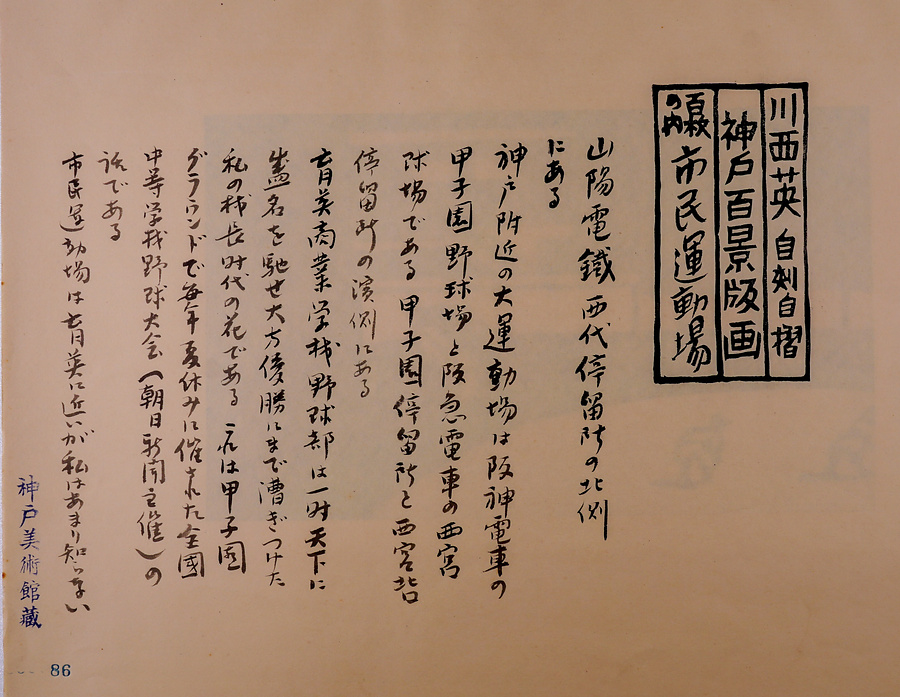 川西英 自刻自摺
神戸百景版画
百枚の内 市民運動場
山陽電鐵西代停留所の北側
にある
神戸附近の大運動場は阪神電車の
甲子園野球場と阪急電車の西宮
球場である 甲子園停留所と西宮北口
停留所の濱側にある
育英商業学校野球部は一時天下に
盛名を馳せ大方優勝にまで漕ぎつけた
私の校長時代の花である これは甲子園
グラウンドで毎年夏休みに催された全國
中等学校野球大会(朝日新聞主催)の
話である
市民運動場は育英に近いが私はあまり知らない
神戸美術館蔵
86